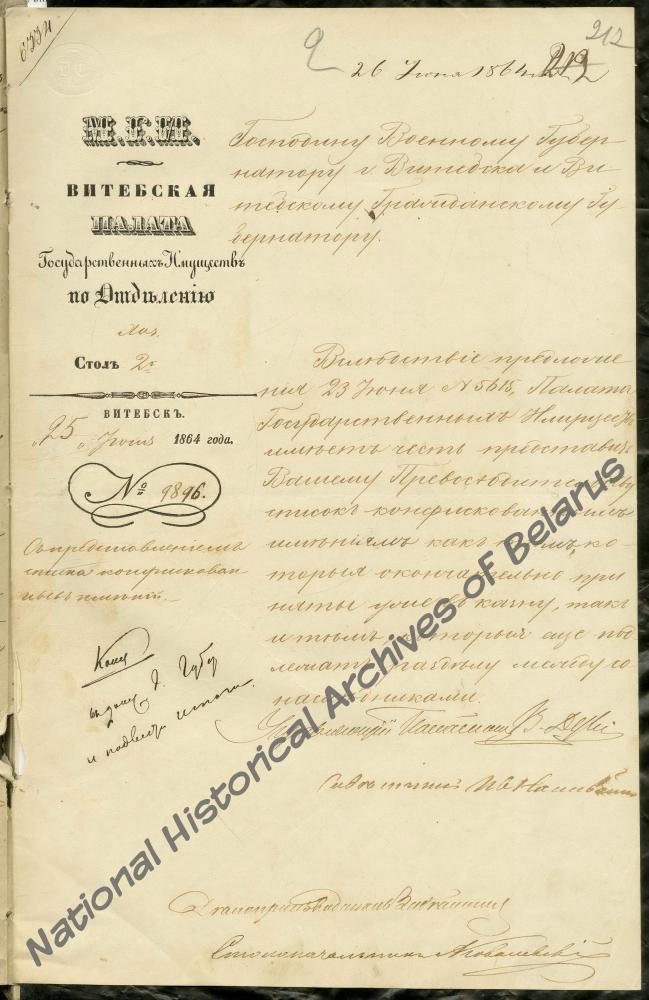 6334
212
26 Июня 1864
212
М.Г.И.
ВИТЕБСКАЯ
ПАЛАТА
Государственныхъ Имуществъ
по Отдѣленію
Хоз.
Столъ 2й
ВИТЕБСКЪ.
"25" Июня 1864 года.
№ 9896.
Съ представленіемъ
списка конфискован
ныхъ имѣній.
Копія
и подвести итоги.
Господину Военному Губер
натору г. Витебска и Ви
тебскому Гражданскому Гу
бернатору.
Вслѣдствіе предложе
нія 23 Июня № 5615, Палата
Государственныхъ Имуществъ
имѣетъ честь представить
Вашему Превосходительству
списокъ конфискованнымъ
имѣніямъ какъ тѣмъ, ко-
торыя окончательно при
няты уже въ казну, такъ
и тѣмъ, которыя еще под
лежатъ раздѣлу между со
наслѣдниками.
Управляющій Палатою
Совѣтникъ
Дѣлопроизводитель
Столоначальникъ Ковалевскій
National Historical Archives of Belarus